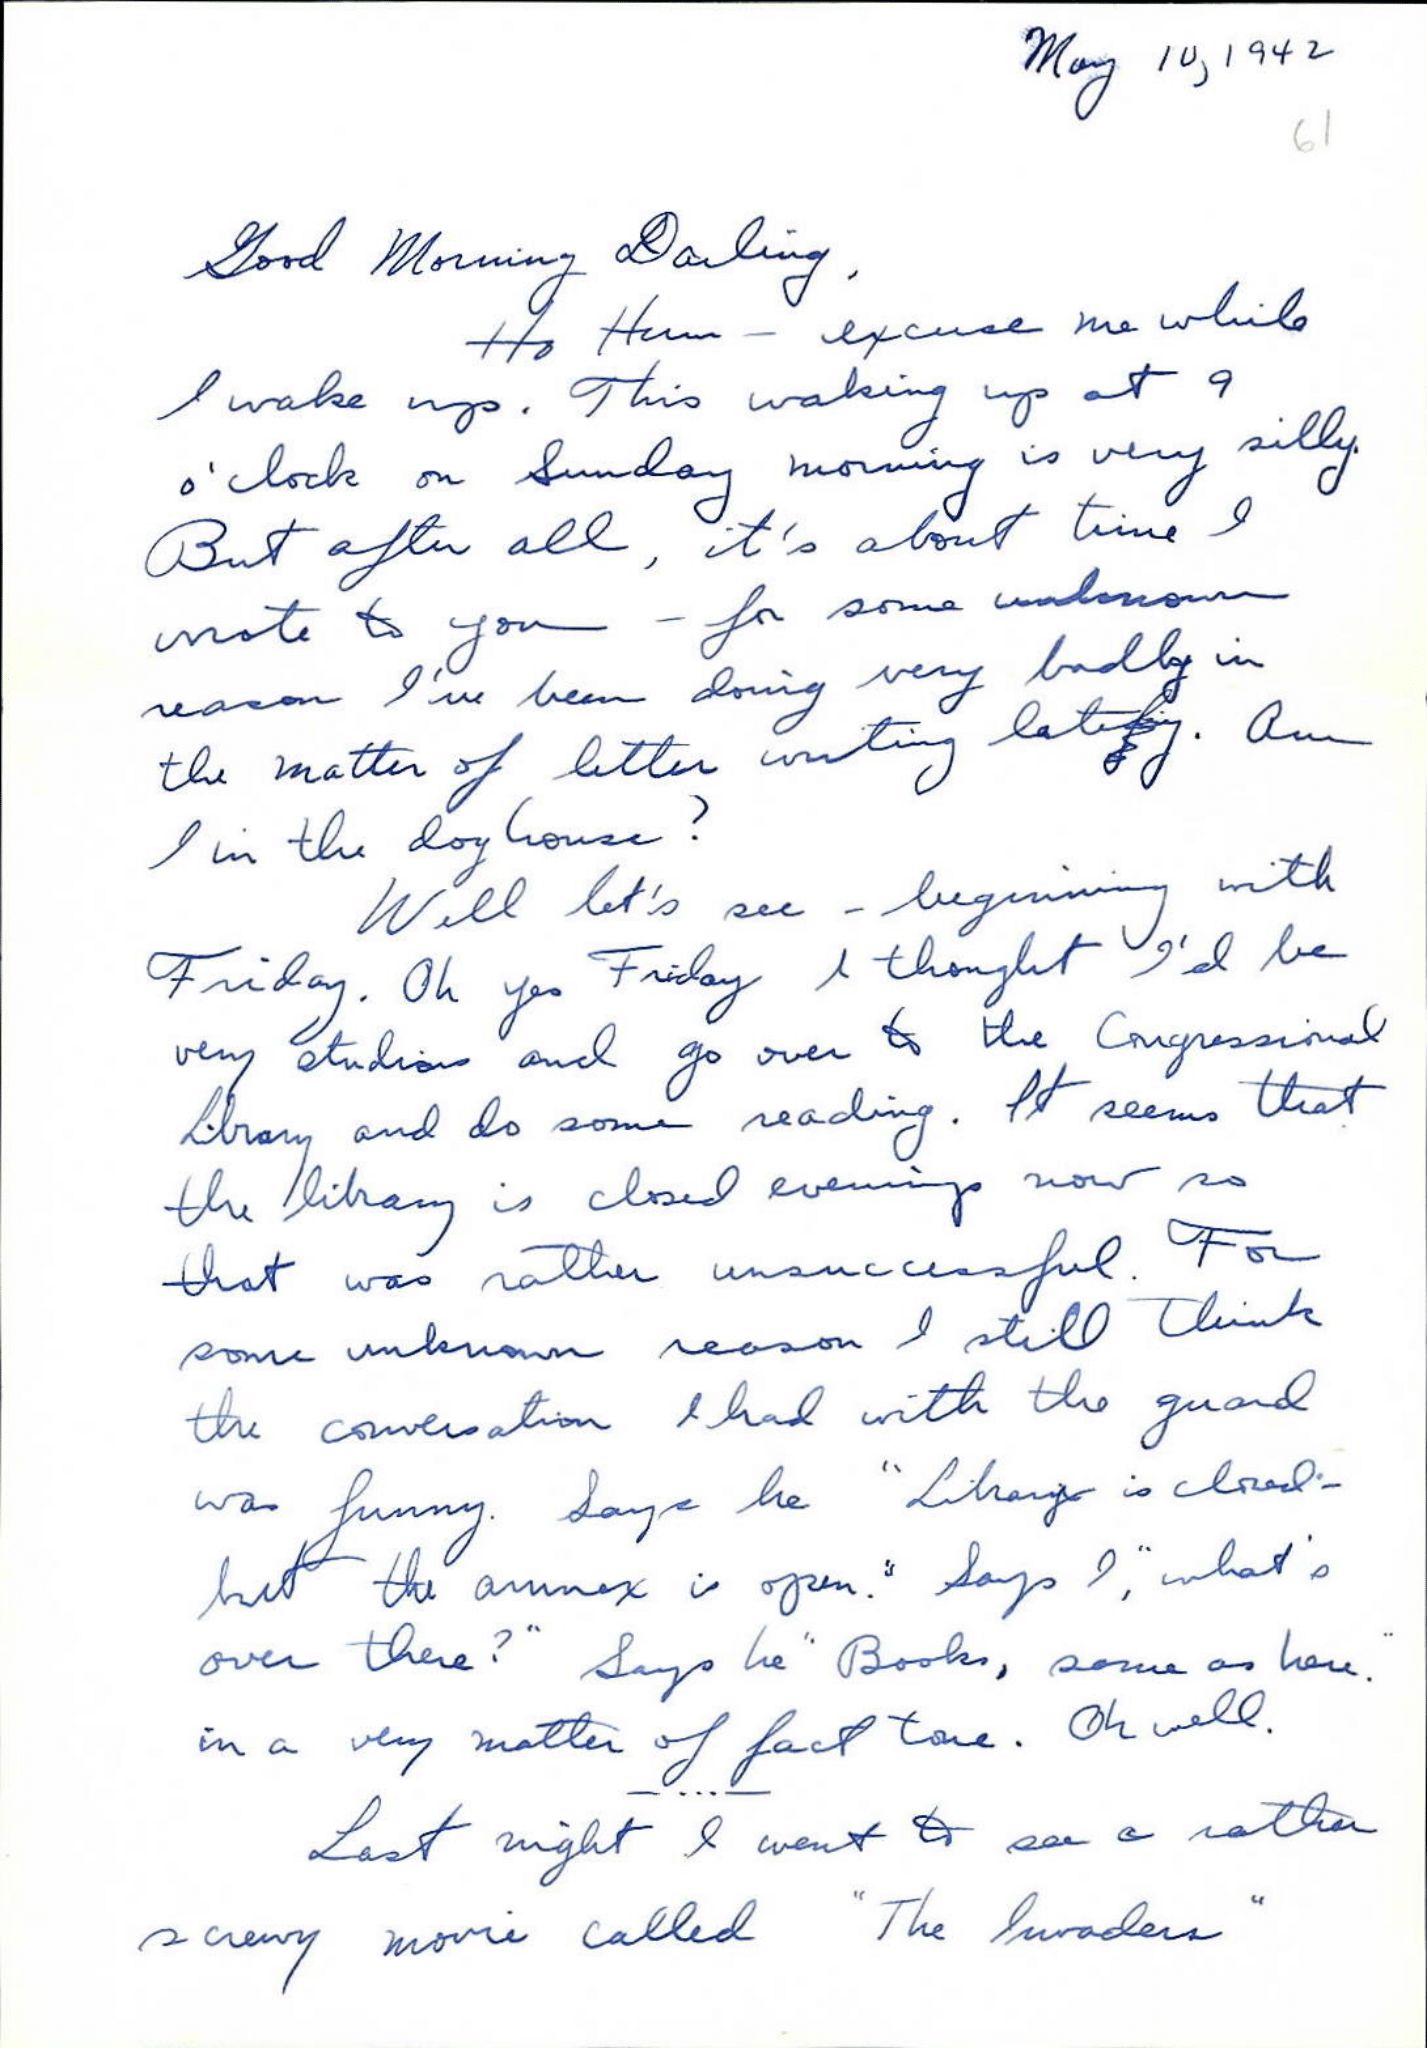 May 10, 1942
61
Good Morning Darling,
Ho Hum - excuse me while
I wake up. This waking up at 9
o'clock on Sunday morning is very silly.
But after all, it's about time I
wrote to you - for some unknown
reason I've been doing very badly in
the matter of letter writing lately. Am
I in the doghouse?
Well let's see - beginning with
Friday. Oh yes Friday I thought I'd be
very studious and go over to the Congressional
Library and do some reading. It seems that
the library is closed evenings now so
that was rather unsuccessful. For
some unknown reason I still think
the conversation I had with the guard
was funny. Says he "Library is closed -
but the annex is open." Says I, "what's
over there?" Says he "Books, same as here."
in a very matter of fact tone. Oh well.
— ... —
Last night I went to see a rather
screwy movie called "The Invaders"